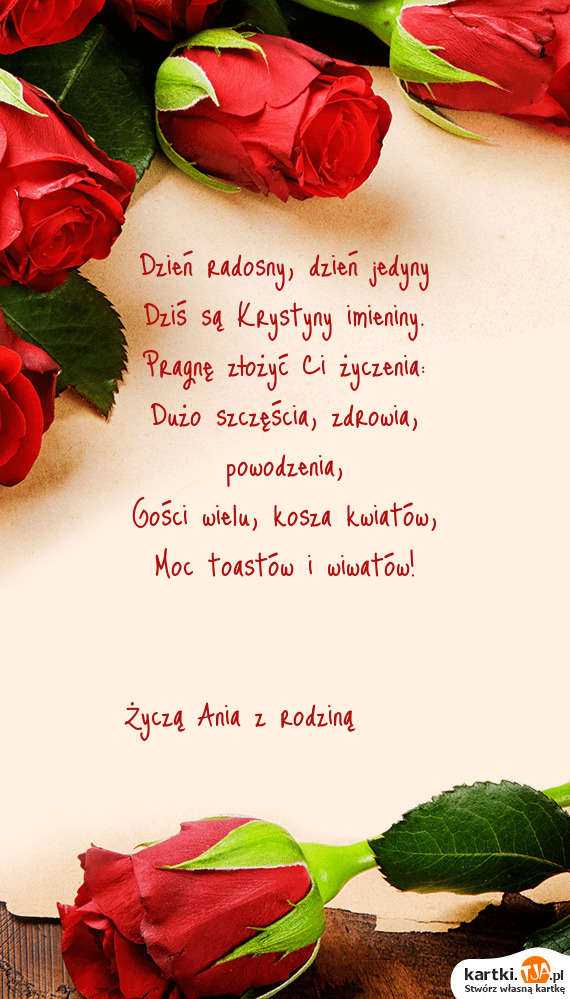 Dzień radosny, dzień jedyny
Dziś są Krystyny imieniny.
Pragnę złożyć Ci życzenia:
Dużo szczęścia, zdrowia,
powodzenia,
Gości wielu, kosza kwiatów,
Moc toastów i wiwatów!
Życzą Ania z rodziną
kartki.TJA.pl
Stwórz własną kartkę